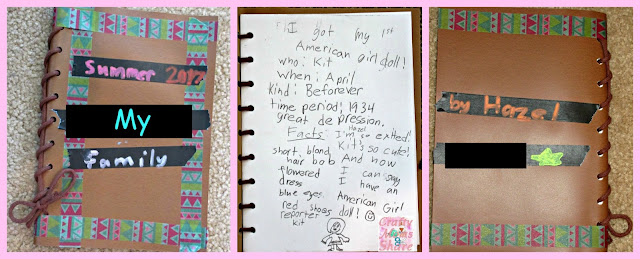 Summer 2017
My
family
I got my 1st
American girl doll!
who: Kit
when: April
kind: Beforever
time period: 1934
great depression.
Facts: Hazel
I'm so exited!
short, blond, Kit's so cute!
hair bob And now
flowered I can say
dress I have an
blue eyes. American Girl
red shoes doll!
reporter
kit
Crafty
Moms
Share
by Hazel